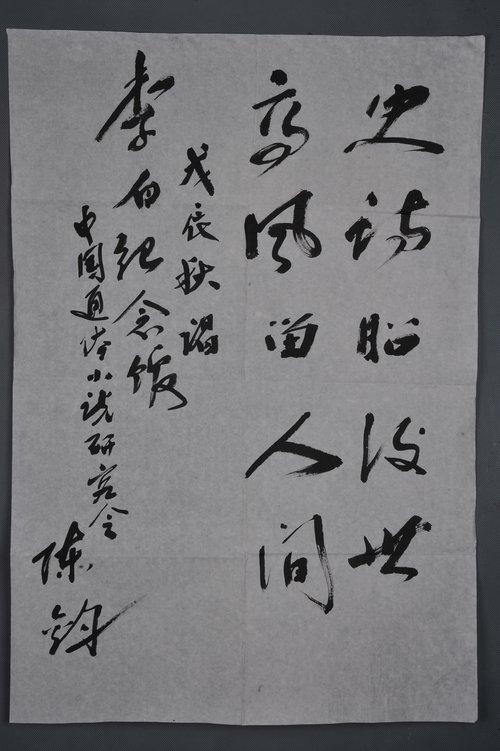 史诗昭後世
高风留人间
戊辰秋谒
李白纪念馆
中国通俗小说研究会
陈钧